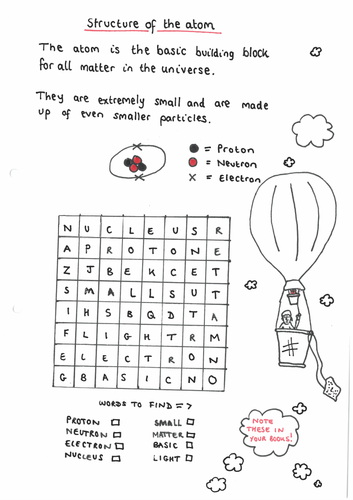 Structure of the atom
The atom is the basic building block
for all matter in the universe.
They are extremely small and are made
up of even smaller particles.
= Proton
= Neutron
X = Electron
N U C L E U S R
A P R O T O N E
Z J B E K C E T
S M A L L S U T
I H S B Q D T A
F L I G H T R M
E L E C T R O N
G B A S I C N O
WORDS TO FIND =>
PROTON
NEUTRON
ELECTRON
NUCLEUS
SMALL
MATTER
BASIC
LIGHT
NOTE
THESE IN
YOUR BOOKS!